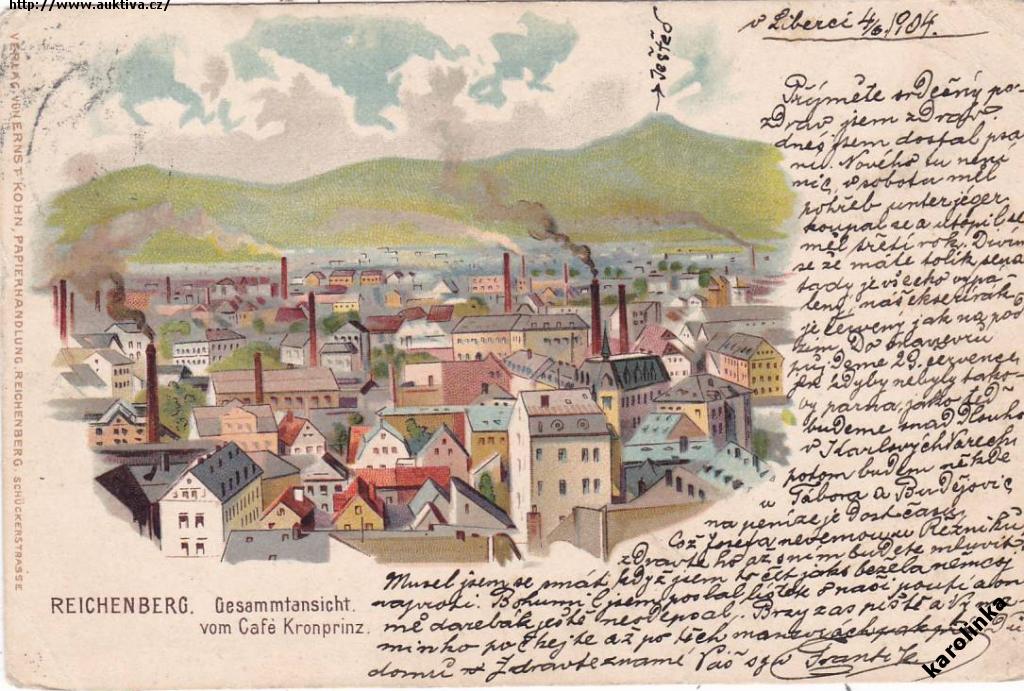 http://www.auktiva.cz/
VERLAG VON ERNST KOHN, PAPIERHANDLUNG, REICHENBERG. SCHÜCKERSTRASSE
→ Ještěd
v Liberci 4/6 1904.
Přijměte srdečný po-
zdrav jsem zdráv.
dnes jsem dostal psa-
ní. Nového tu není
nic, v sobotu měl
pohřeb unterjéger
koupal se a utopil se
měl třetí rok. Divím
se že máte tolik sena
tady je všecko vypá-
lený náš eksecírák
je červený jak na pod
zim. Do manevrů
půjdeme 29. července
kdyby nebyly tako-
vý parna jako teď
budeme snad dlouho
v Karlových Varech
potom budem někde
u Tábora a Budějovic
na peníze je dost času
Což Josefa nevemou ku Řezníků
zdravte ho až s ním budete mluvit
Musel jsem se smát když jsem to čet jak běžela němcoj
naproti. Bohumil jsem poslal lístek s naší poutí a on
mě darebák ještě neodepsal. Brzy zas pište a Vy
minko počkejte až po těch manévrách
domů Zdravte známé Váš syn Frantík
REICHENBERG. Gesammtansicht.
vom Café Kronprinz.
karolinka